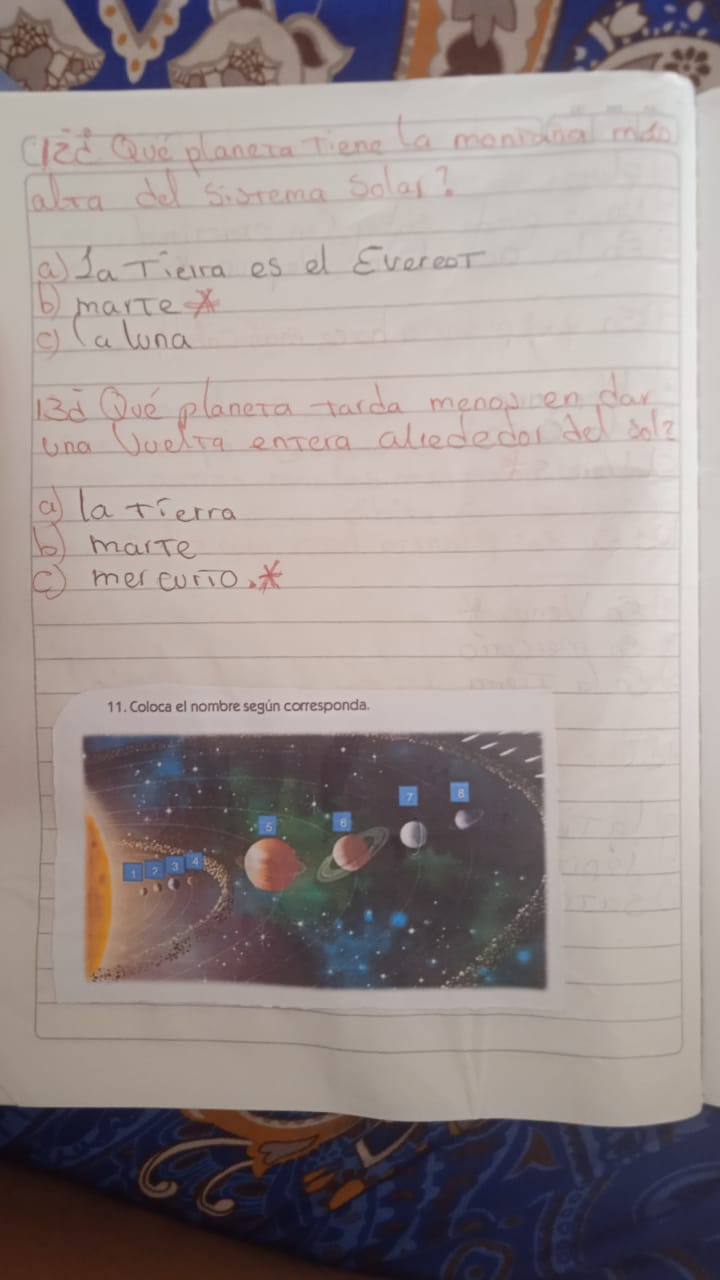 12ª ¿Qué planeta Tiene la montaña más
alta del Sistema Solar?
a) La Tierra es el Everest
b) marte *
c) la luna
13ª ¿Qué planeta tarda menos en dar
una Vuelta entera alrededor del sol?
a) la tierra
b) marte
c) mercurio. *
11. Coloca el nombre según corresponda.
1 2 3 4 5 6 7 8